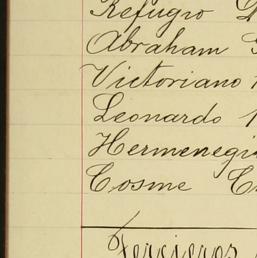 Refugio
Abraham
Victoriano
Leonardo
Hermenegi
Cosme